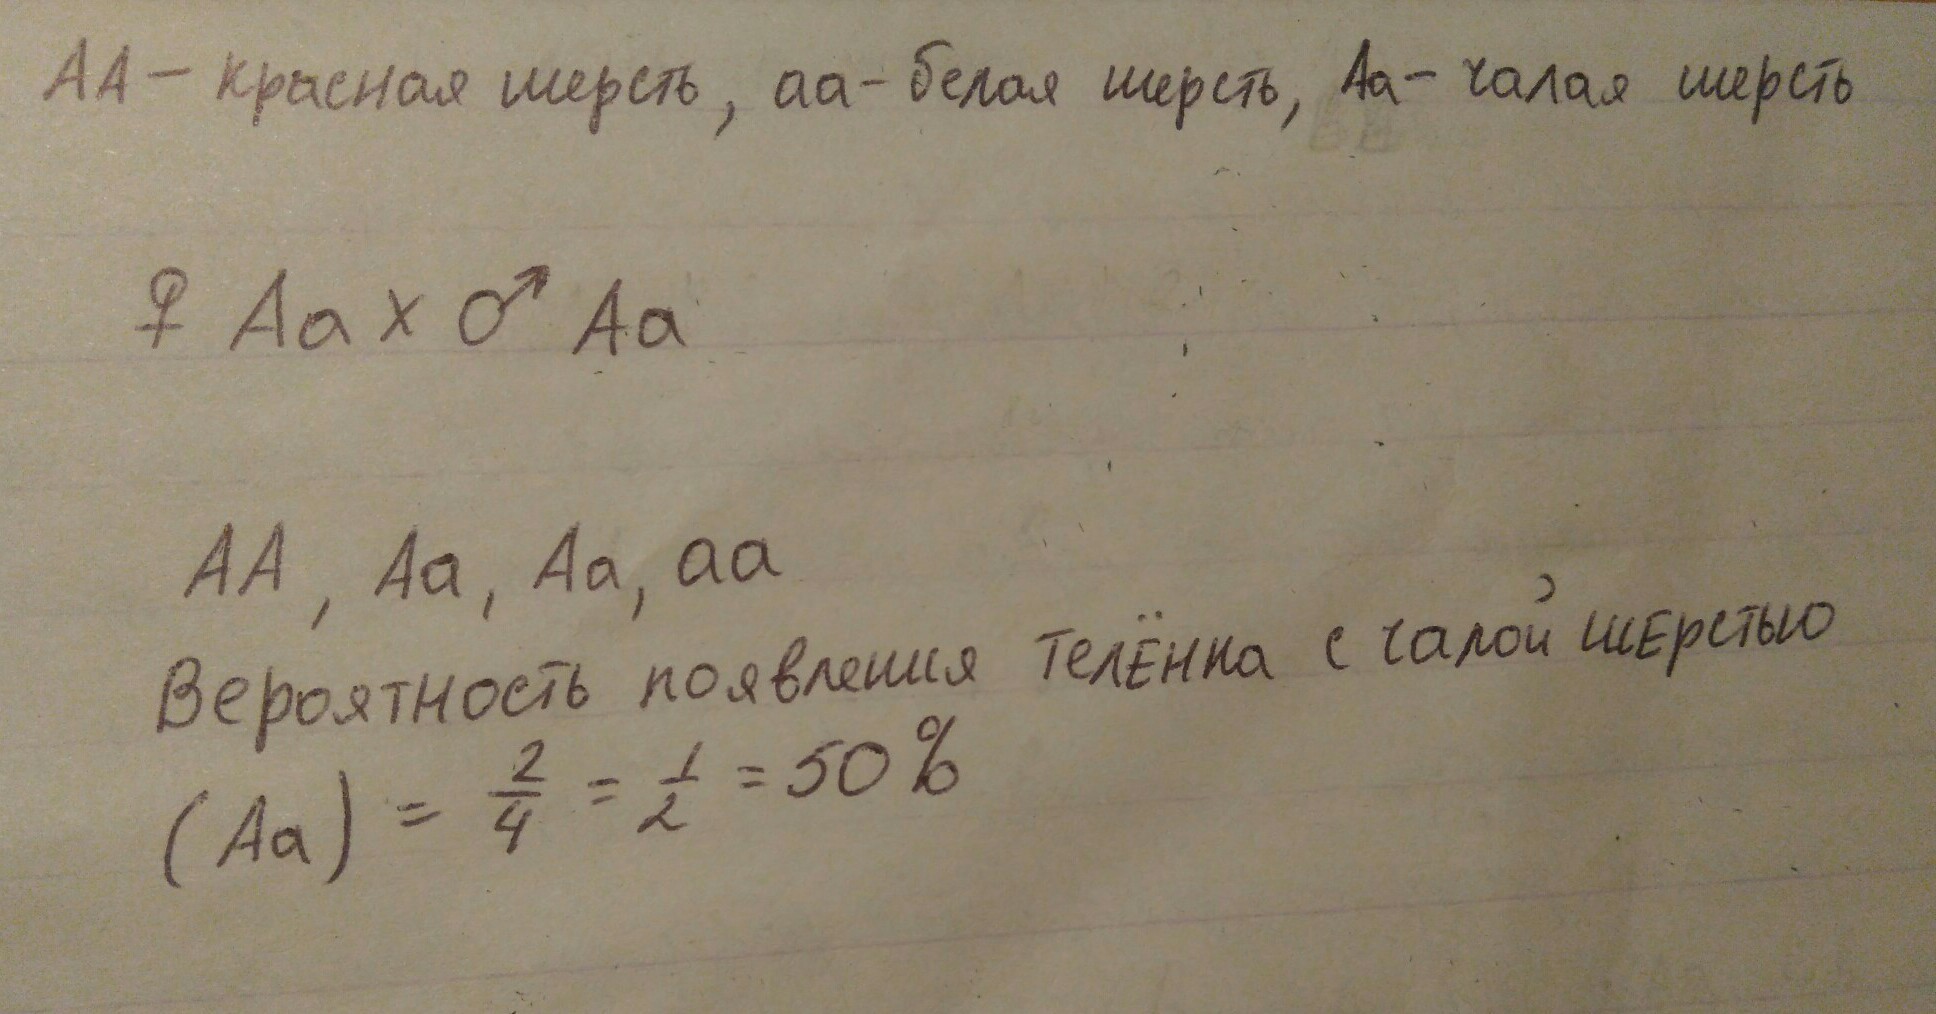 АА – красная шерсть, аа – белая шерсть, Аа – чалая шерсть
♀ Аа х ♂ Аа
АА, Аа, Аа, аа
Вероятность появления телёнка с чалой шерстью
(Аа) = 2/4 = 1/2 = 50%